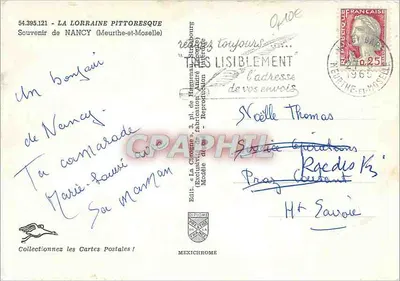 54.395.121 - LA LORRAINE PITTORESQUE
Souvenir de NANCY (Meurthe-et-Moselle)
Un bonjour
de Nancy.
Ta camarade
Marie-Laure et
Sa maman
Collectionnez les Cartes Postales !
Edit. "La Cigogne", 3, pl. de Haguenau, Strasbourg
Modèle déposé - Reproduction Interdite
MEXICHROME
0,10€
rédigez toujours
TRÈS LISIBLEMENT
l'adresse
de vos envois
REPUBLIQUE FRANCAISE
0,25F
1965
MEURTHE-ET-MOSELLE
CPAPHIL
Noëlle Thomas
Praz Coutant
Hte Savoie